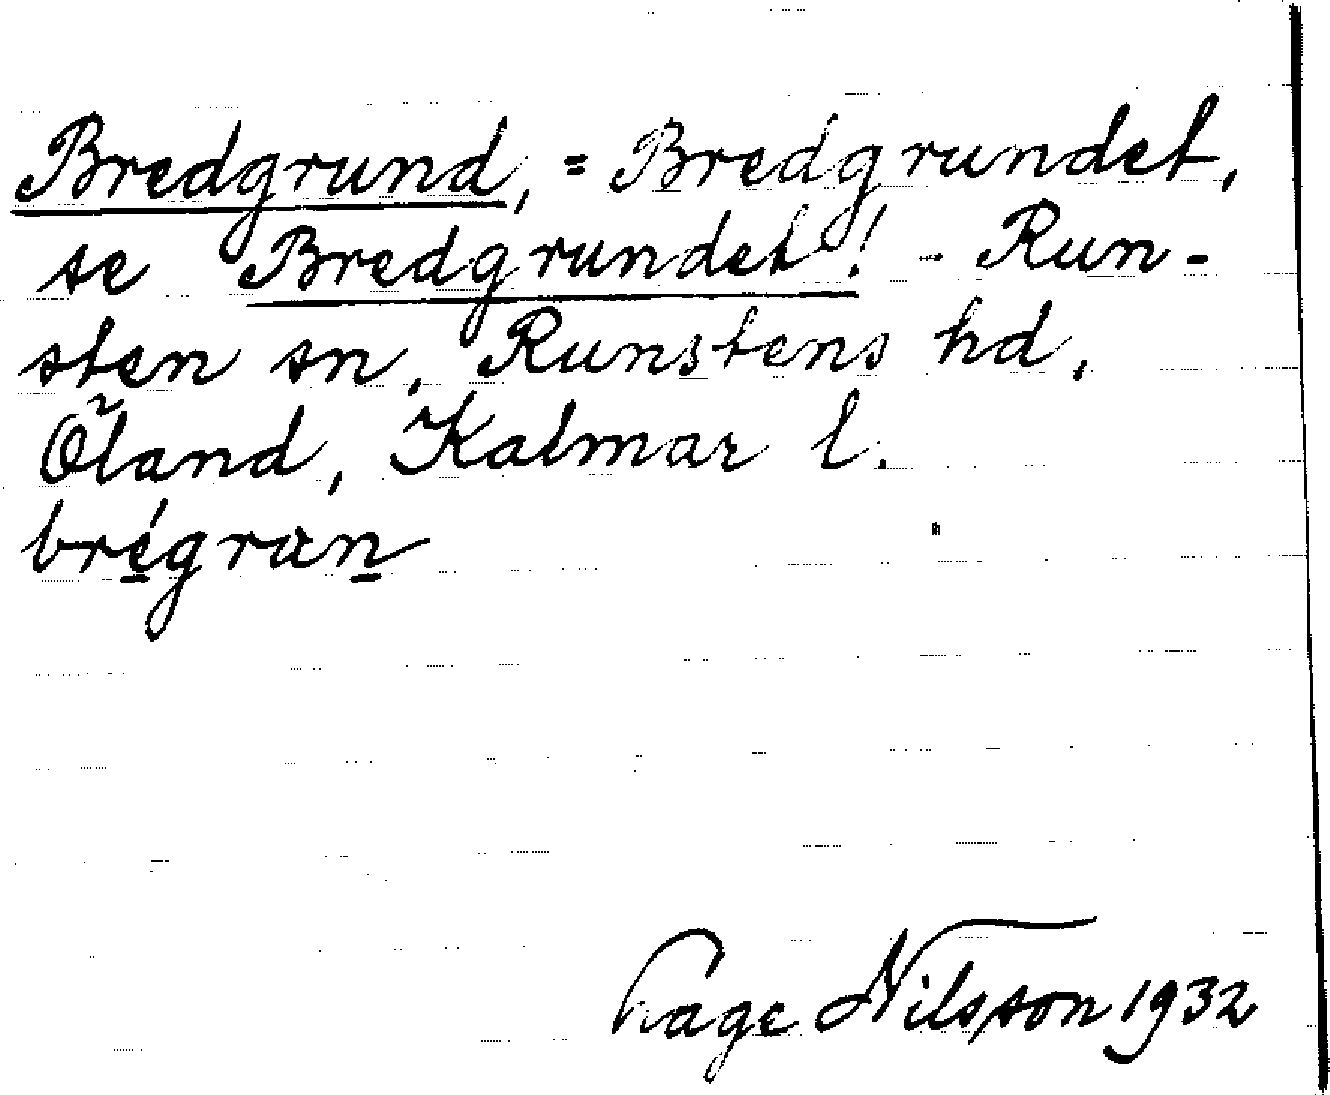 Bredgrund, = Bredgrundet,
se Bredgrundet! - Run-
sten sn, Runstens hd,
Öland, Kalmar l.
brégran
Hage Nilsson 1932